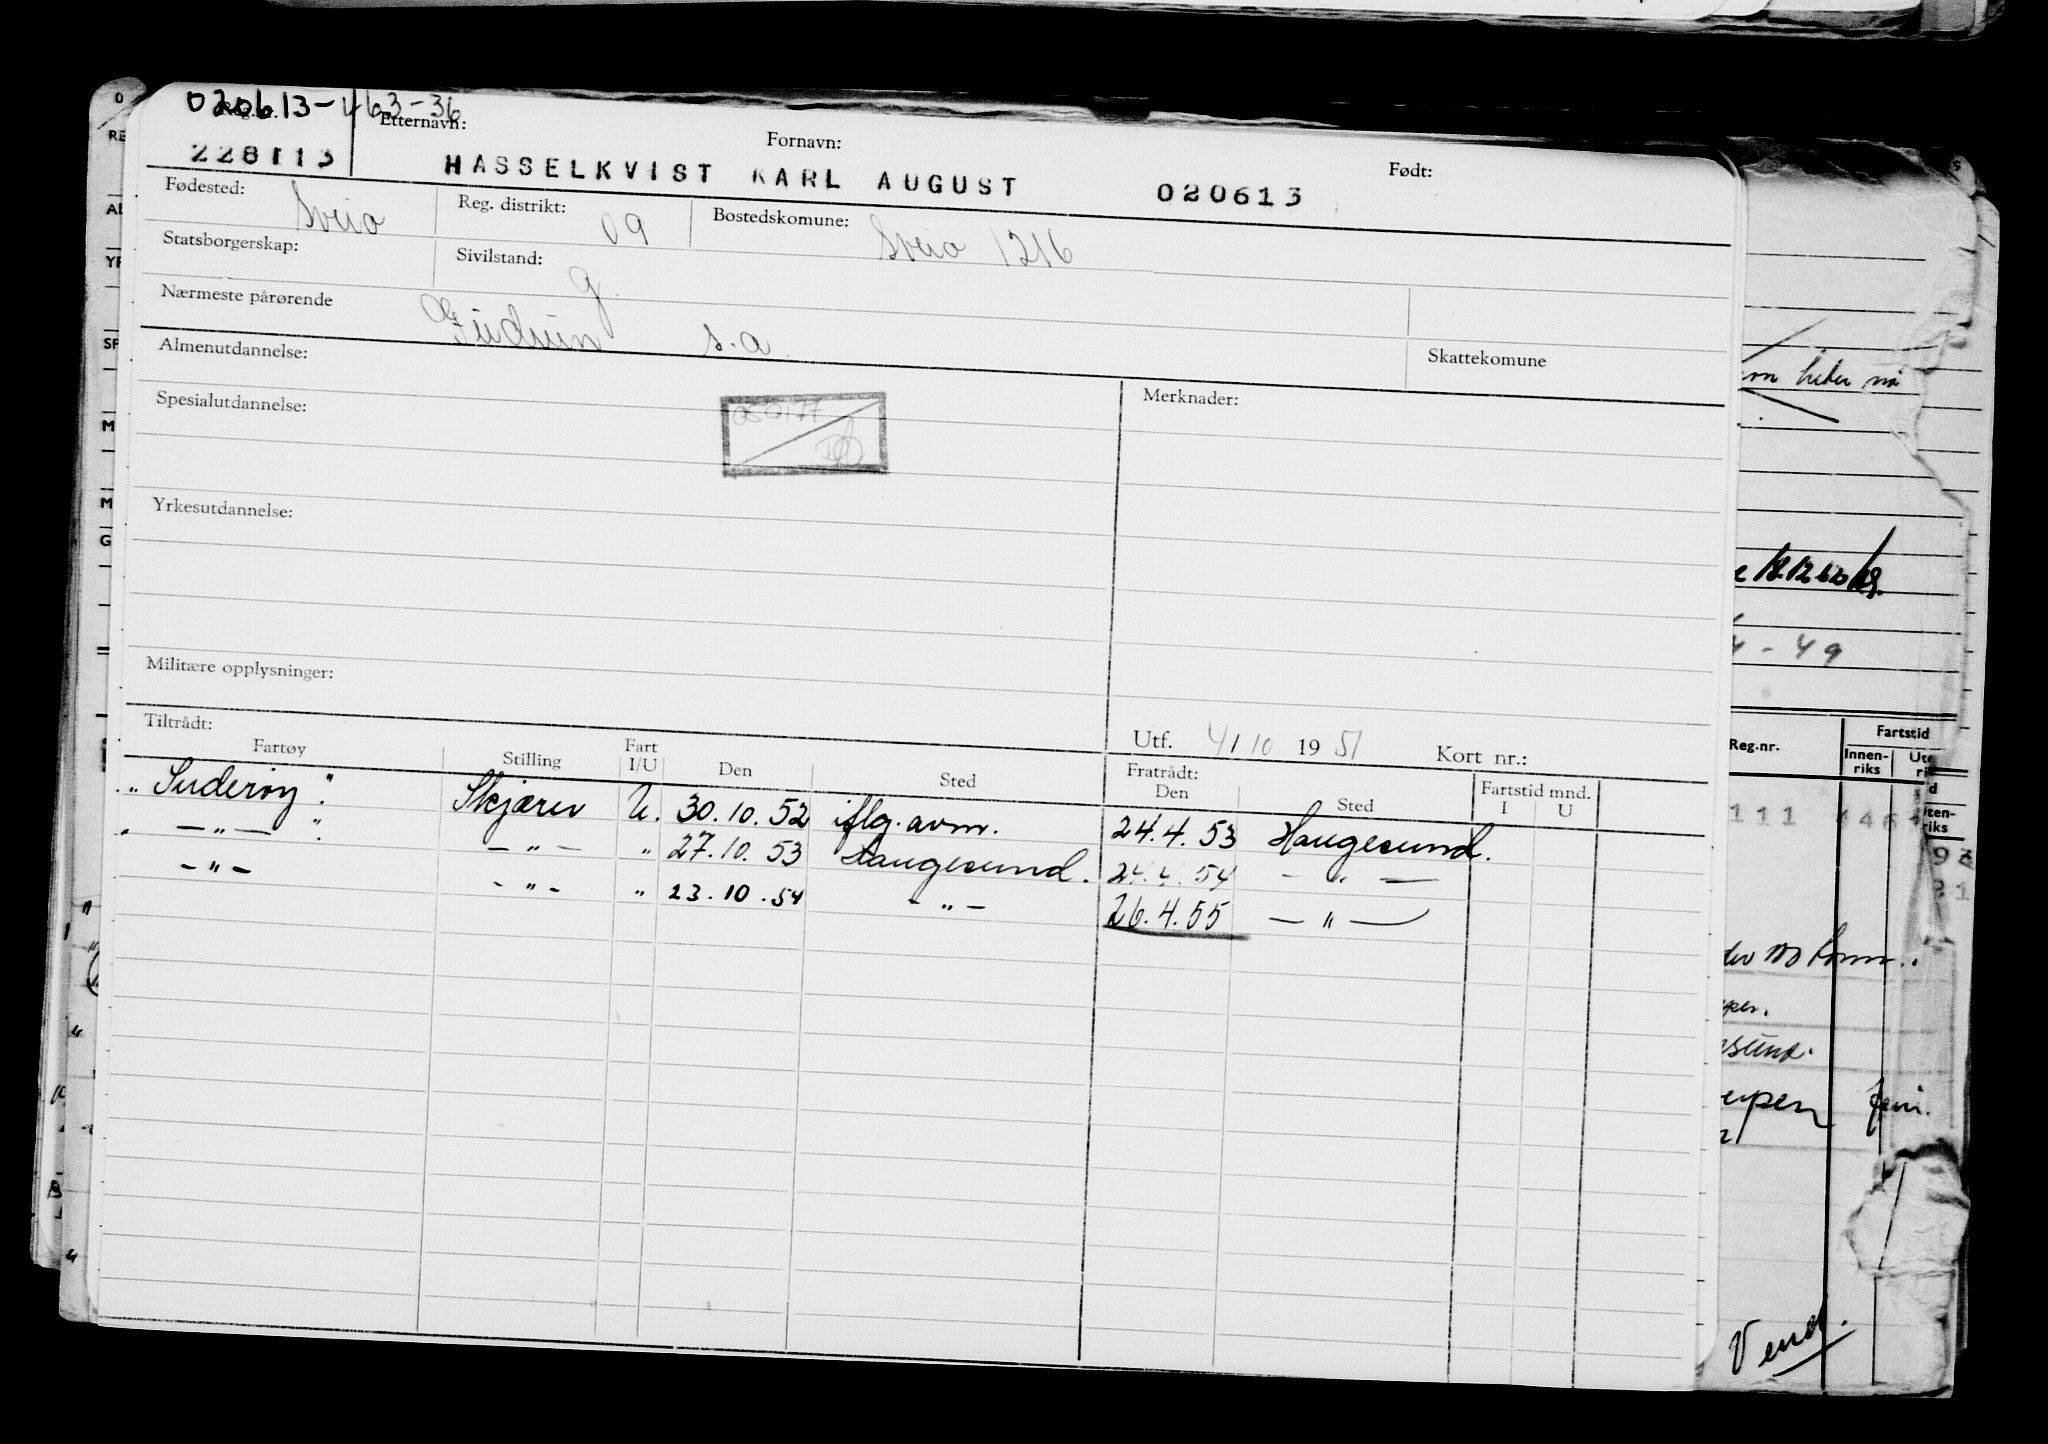 020613-463-36
Etternavn: Fornavn: Født:
228113 HASSELKVIST KARL AUGUST 020613
Fødested: Sveio Reg. distrikt: 09 Bostedskomune: Sveio 1216
Statsborgerskap: Sivilstand: g
Nærmeste pårørende Gudrun s.a
Almenutdannelse: Skattekomune
Spesialutdannelse: Merknader:
Yrkesutdannelse:
Militære opplysninger:
Tiltrådt: Utf. 4/10 1951 Kort nr.:
Fartøy Stilling Fart I/U Den Sted Fratrådt: Den Sted Fartstid mnd. I U
"Suderøy". Skjærer U. 30.10.52 iflg. avm. 24.4.53 Haugesund.
" — " — " — " — " 27.10.53 Haugesund. 24.4.54 — " —
— " — - " - " 23.10.54 - " — 26.4.55 — " —
18.12
4 - 49
Reg.nr. Fartstid
Innen-
riks
111
Vend.